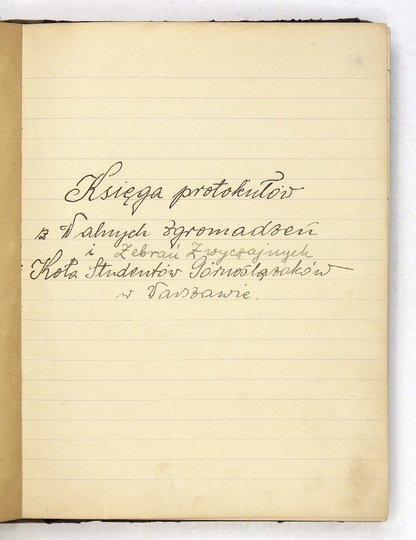 Księga protokułów
z Walnych zgromadzeń
i Zebrań Zwyczajnych
Koła Studentów Górnoślązaków
w Warszawie.